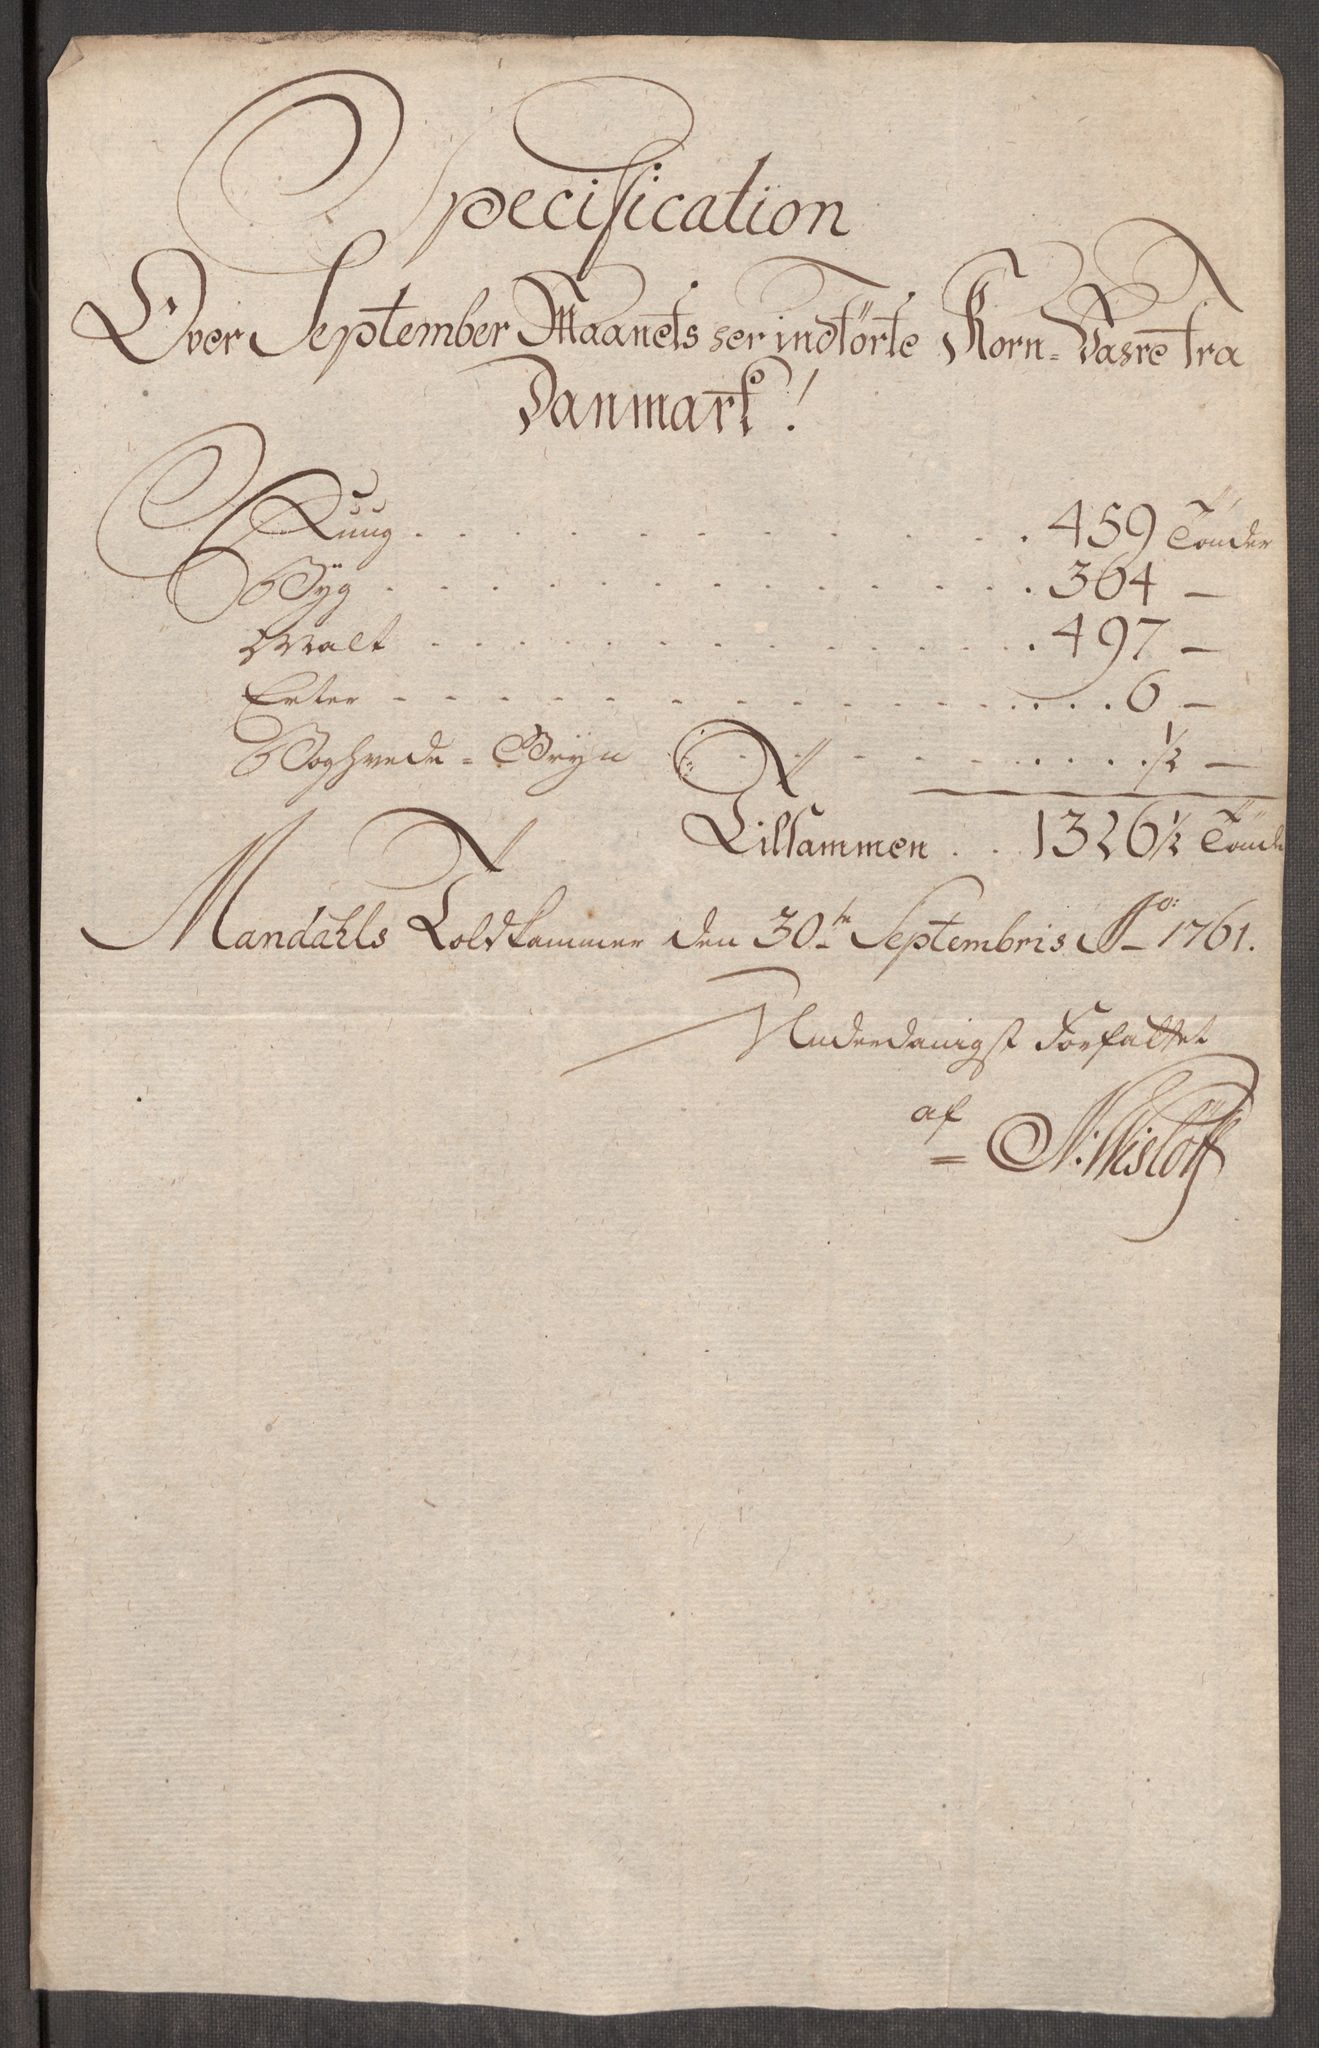 Specification
Over September Maanets her indførte Korn-Vahre fra
Danmark!
Ruug . . . . . . . . . . . . 459 Tønder
Byg . . . . . . . . . . . . 364 —
Malt . . . . . . . . . . . . 497 —
Erter - - - - - - - - - - . . . . 6 —
Boghvede-Gryn . . . - - - - . . . . ½ —
Tilsammen . . 1326½ Tønde
Mandahls Toldkammer den 30te Septembris Ao: 1761.
Underdanigst Forfattet
af
N: Wisløff